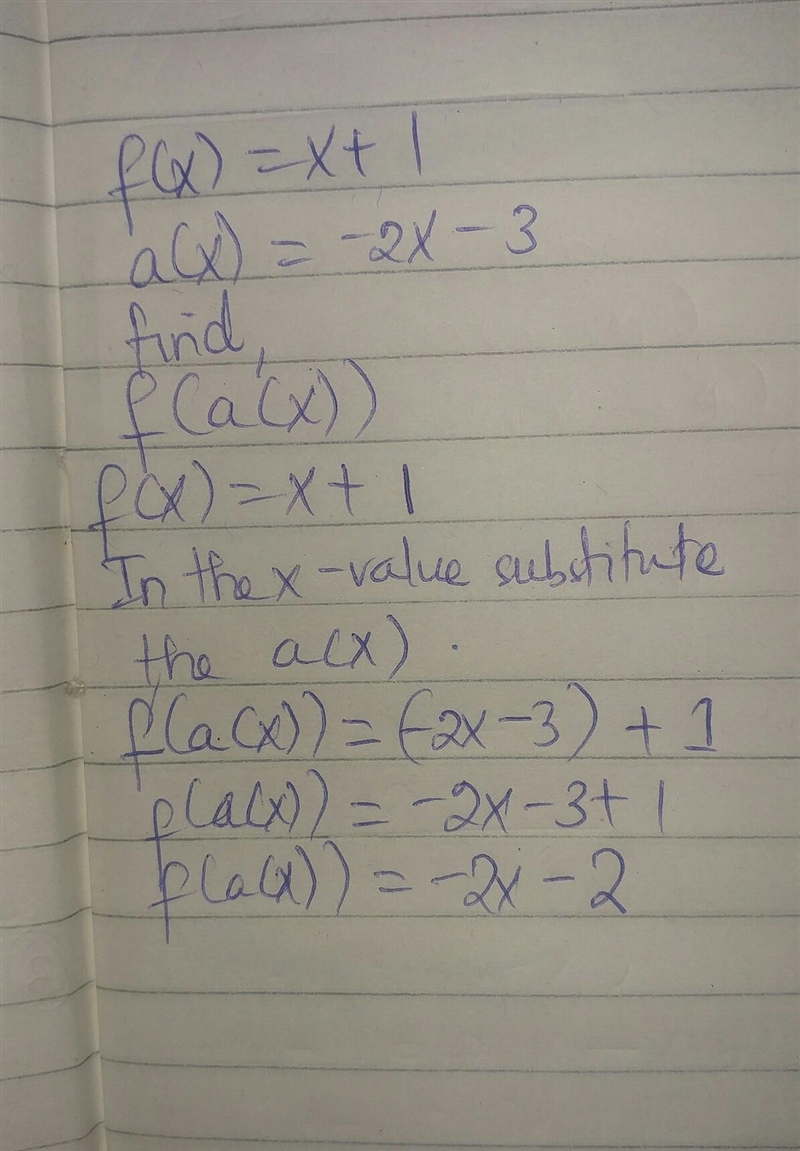 f(x) = x + 1
a(x) = -2x - 3
find,
f(a(x))
f(x) = x + 1
In the x-value substitute
the a(x) .
f(a(x)) = (-2x - 3) + 1
f(a(x)) = -2x - 3 + 1
f(a(x)) = -2x - 2